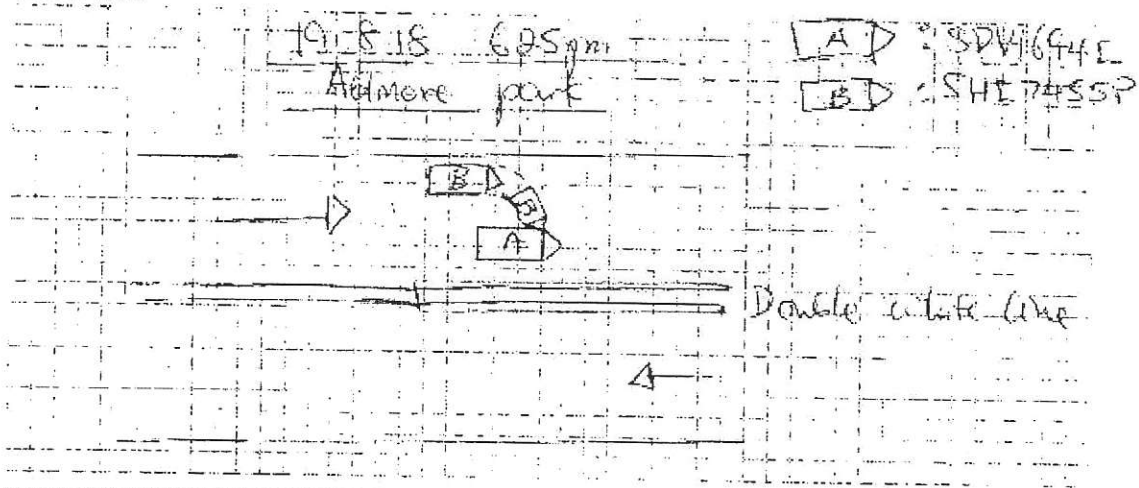 19.8.18 625pm
Ardmore park
A : SDV1694E
B : SHE7455P
B
B
A
Double white line